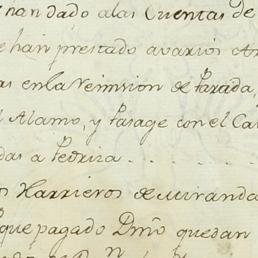 han dado a las Cuentas de
e han prestado a varios Ar
as en la Reimsion de Parada,
l Alamo, y Pasage con el Ca
das a Pedriza . . . . . .
os Harrieros de Miranda
que pagado Dmõ quedan